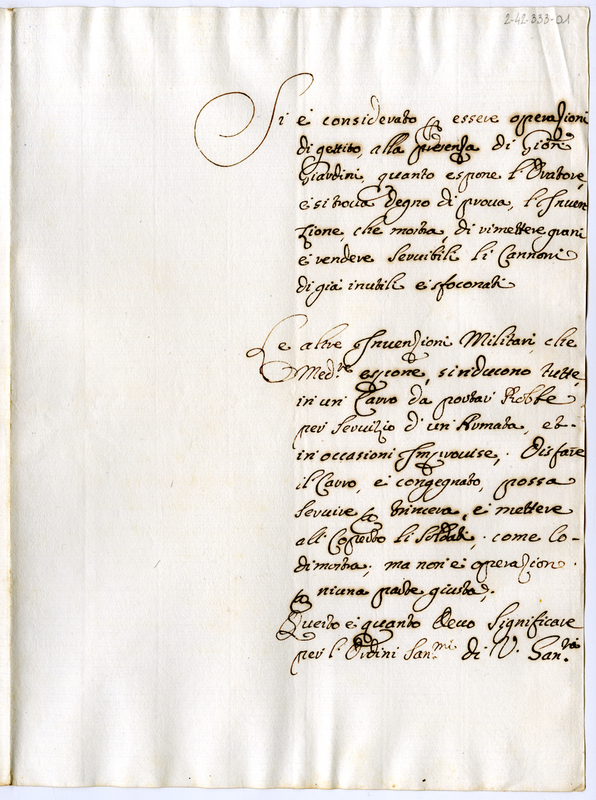 2-42-333-01
Si è considerato p essere operazioni
di gettito, alla presenza di Gion
Giardini, quanto espone l'Oratore,
e si trova degno di prova, l'Inuen
zione, che mostra, di rimettere grani
e rendere seruibili li Cannoni
di già inutili e sfoconati
Le altre Inuenzioni Militari, che
Med.re espone, si riducono tutte,
in un Carro da portar Robbe
per seruizio d'un Armata, et
in occasioni Improuise, Disfare
il Carro, e congegnato, possa
seruire p trincera, e mettere
all Coperto li Soldati, come lo
dimostra, ma non è operazion
p niuna parte giusta,
Questo è quanto deuo significare
per l'Ordini San.mi di V. San.tà